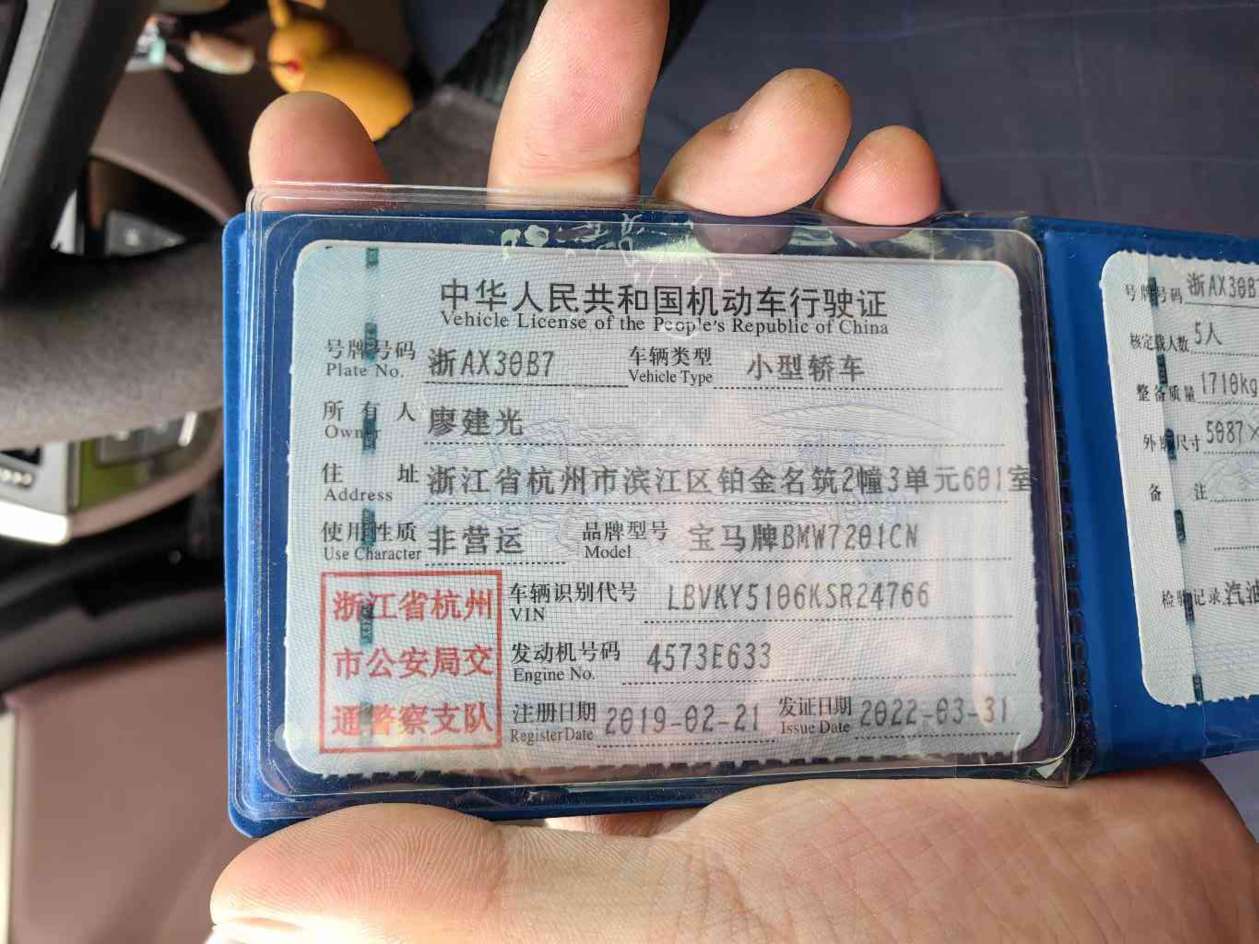 中华人民共和国机动车行驶证
Vehicle License of the People's Republic of China
号牌号码 浙AX30B7 车辆类型 小型轿车
Plate No. Vehicle Type
所有人 廖建光
Owner
住址 浙江省杭州市滨江区铂金名筑2幢3单元601室
Address
使用性质 非营运 品牌型号 宝马牌BMW7201CN
Use Character Model
浙江省杭州
市公安局交
通警察支队
车辆识别代号 LBVKY5106KSR24766
VIN
发动机号码 4573E633
Engine No.
注册日期 2019-02-21 发证日期 2022-03-31
Register Date Issue Date
号牌号码 浙AX30B7
核定载人数 5人
整备质量 1710kg
外廓尺寸 5087×
备注
检验记录 汽油